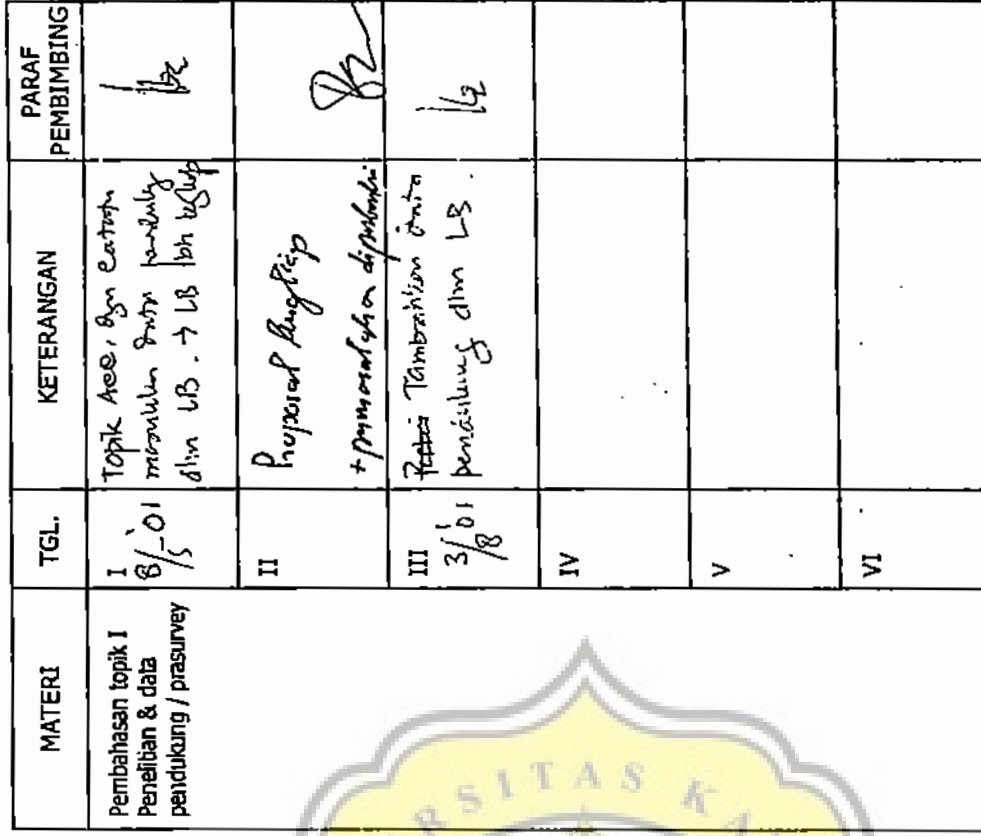 MATERI
TGL.
KETERANGAN
PARAF
PEMBIMBING
Pembahasan topik I
Penelitian & data
pendukung / prasurvey
I
8/5-'01
Topik Acc, dgn catatan
data
dlm LB. → LB lbh
II
Proposal
+ permasalahan diperbaiki
III
3/8 '01
Tambahkan data
pendukung dlm LB.
IV
V
VI
RSITAS KA